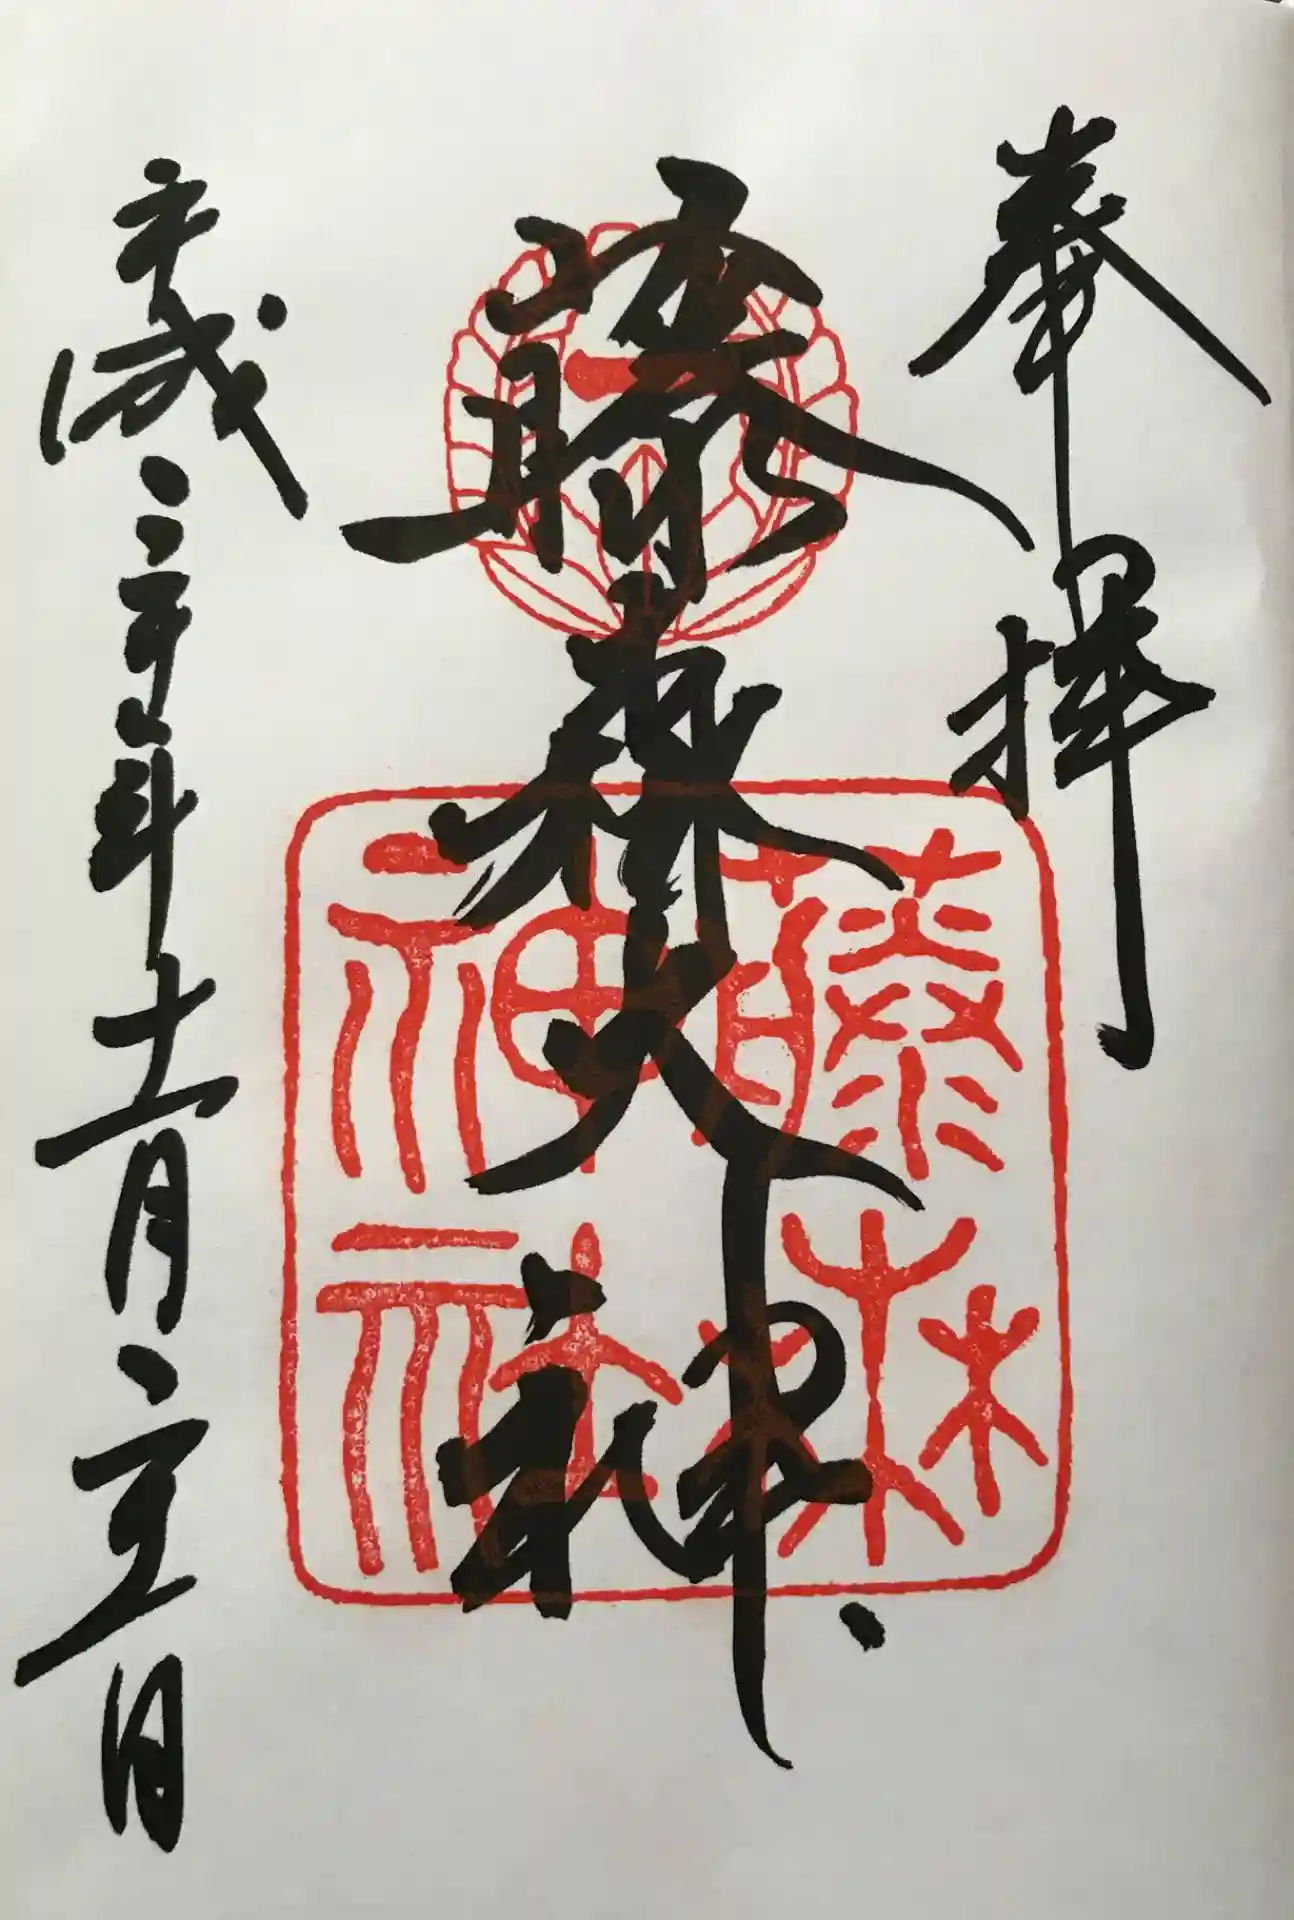 奉拝
藤森大神
藤森神社
平成三十年 月 日